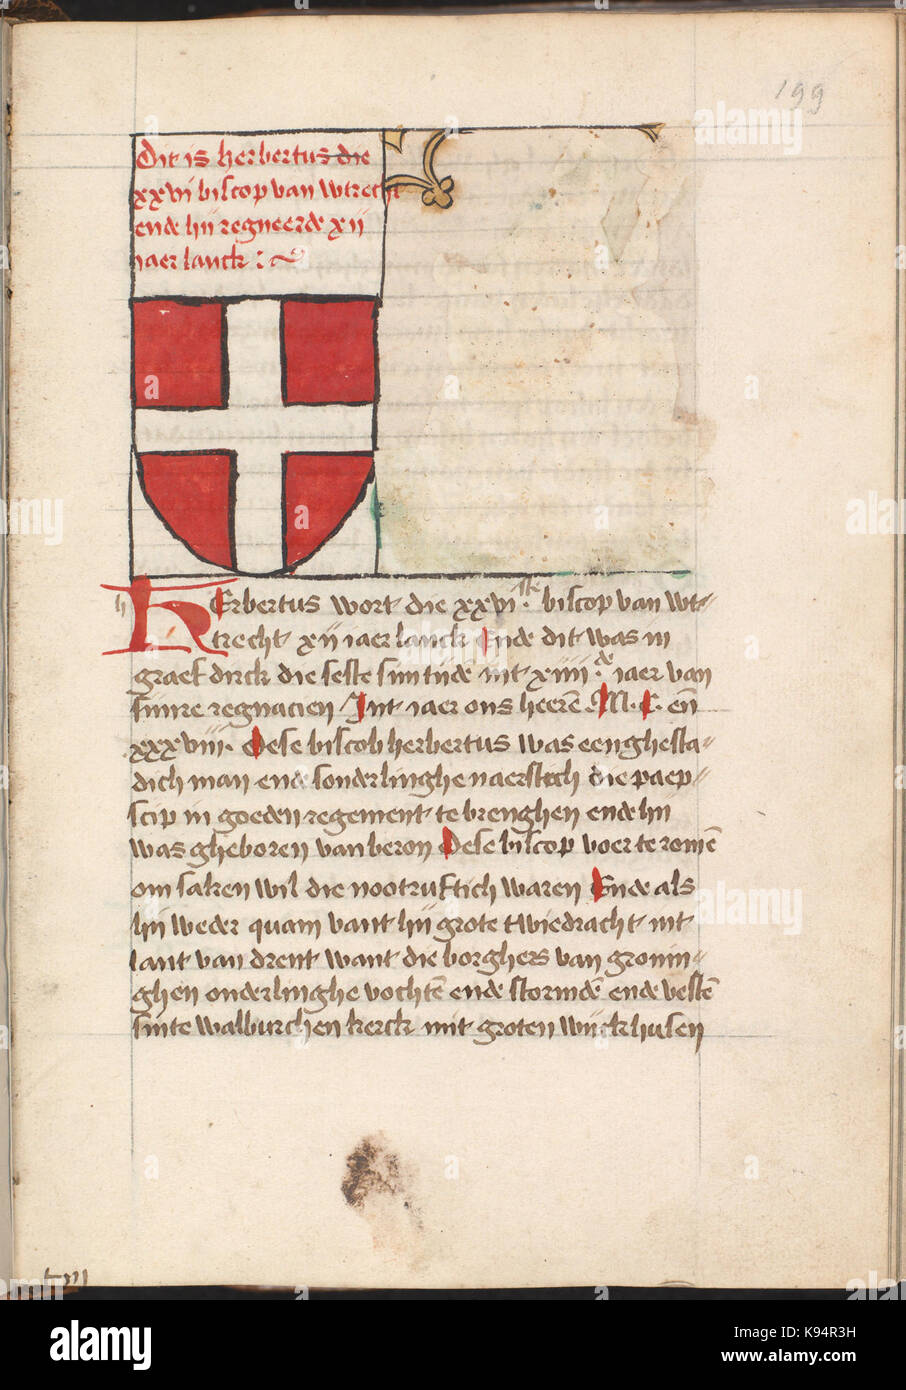 199
Dit is herbertus die
xxvi biscop van wtrecht
ende hij regneerde xij
iaer lanck :
h
HErbertus wort die xxvi.ste biscop van wt=
trecht xij iaer lanck Ende dit was in
graef dirck die seste sijn tijde int xiiij.de iaer van
sijnre regnacien Int iaer ons heerē .M.C. en̄
xxxviij. Dese biscob herbertus was een ghesta=
dich man ende sonderlinghe naerstich die paep=
scip in goeden regement te brenghen ende hij
was gheboren van beron Dese biscop voer te romē
om saken wil die nootruftich waren Ende als
hij weder quam vant hij grote twiedracht int
lant van drent want die borghers van gronin=
ghen onderlinghe vochtē ende stormdē ende vestē
sinte walburchen kerck mit groten wijckhusen
alamy stock photo
K94R3H
www.alamy.com